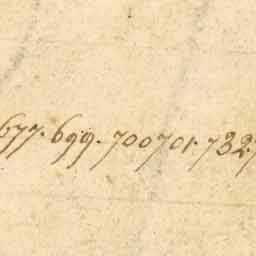 677. 699. 700701. 732